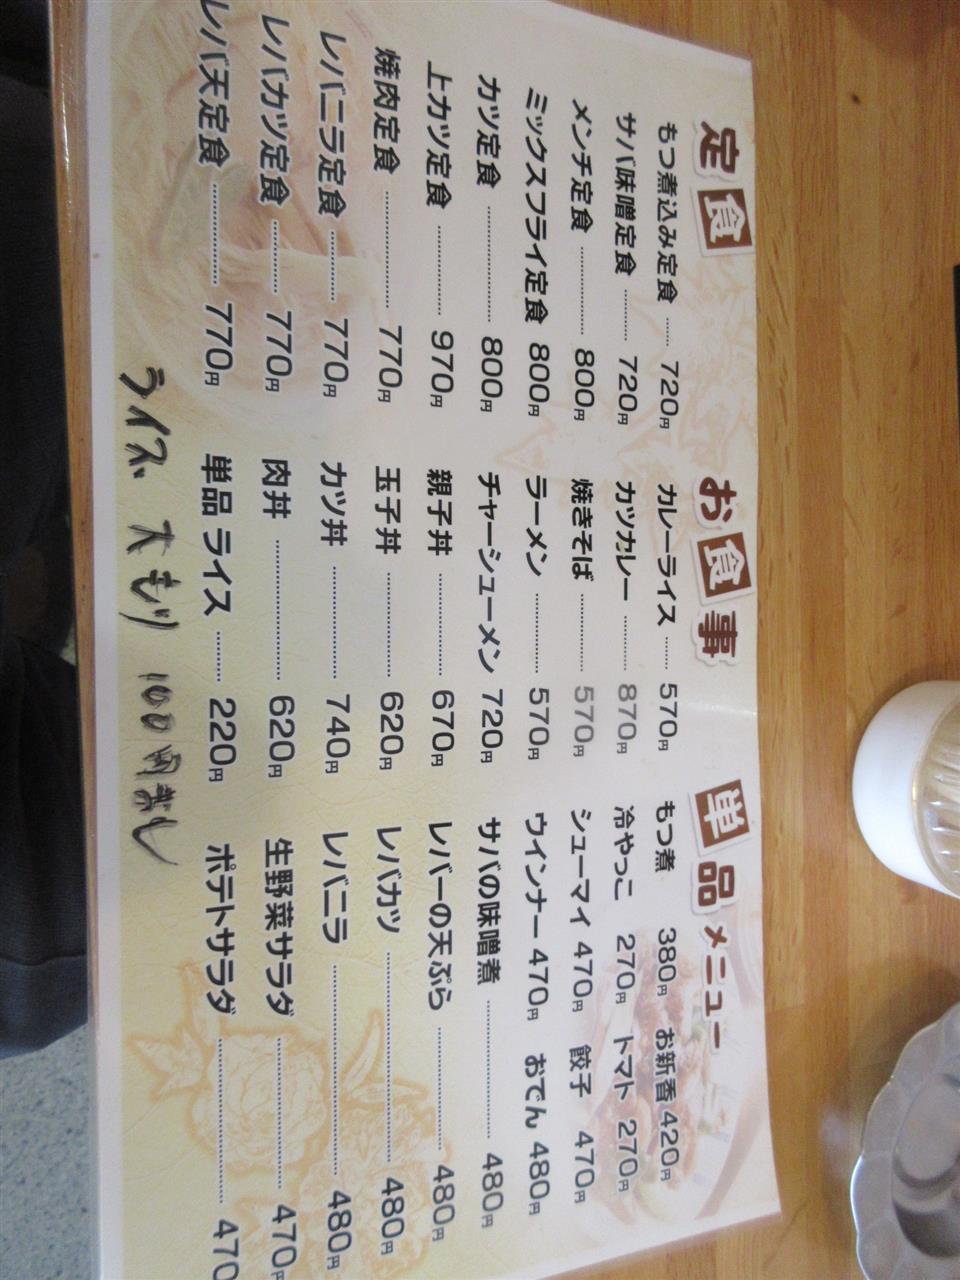 定食
もつ煮込み定食 ……… 720円
サバ味噌定食 ……… 720円
メンチ定食 ……… 800円
ミックスフライ定食 800円
カツ定食 ……… 800円
上カツ定食 ……… 970円
焼肉定食 ……… 770円
レバニラ定食 ……… 770円
レバカツ定食 ……… 770円
レバ天定食 ……… 770円
お食事
カレーライス ……… 570円
カツカレー ……… 870円
焼きそば ……… 570円
ラーメン ……… 570円
チャーシューメン 720円
親子丼 ……… 670円
玉子丼 ……… 620円
カツ丼 ……… 740円
肉丼 ……… 620円
単品 ライス ……… 220円
単品メニュー
もつ煮 380円 お新香 420円
冷やっこ 270円 トマト 270円
シューマイ 470円 餃子 470円
ウインナー 470円 おでん 480円
サバの味噌煮 ……… 480円
レバーの天ぷら ……… 480円
レバカツ ……… 480円
レバニラ ……… 480円
生野菜サラダ ……… 470円
ポテトサラダ ……… 470
ライス、大もり 100円まし